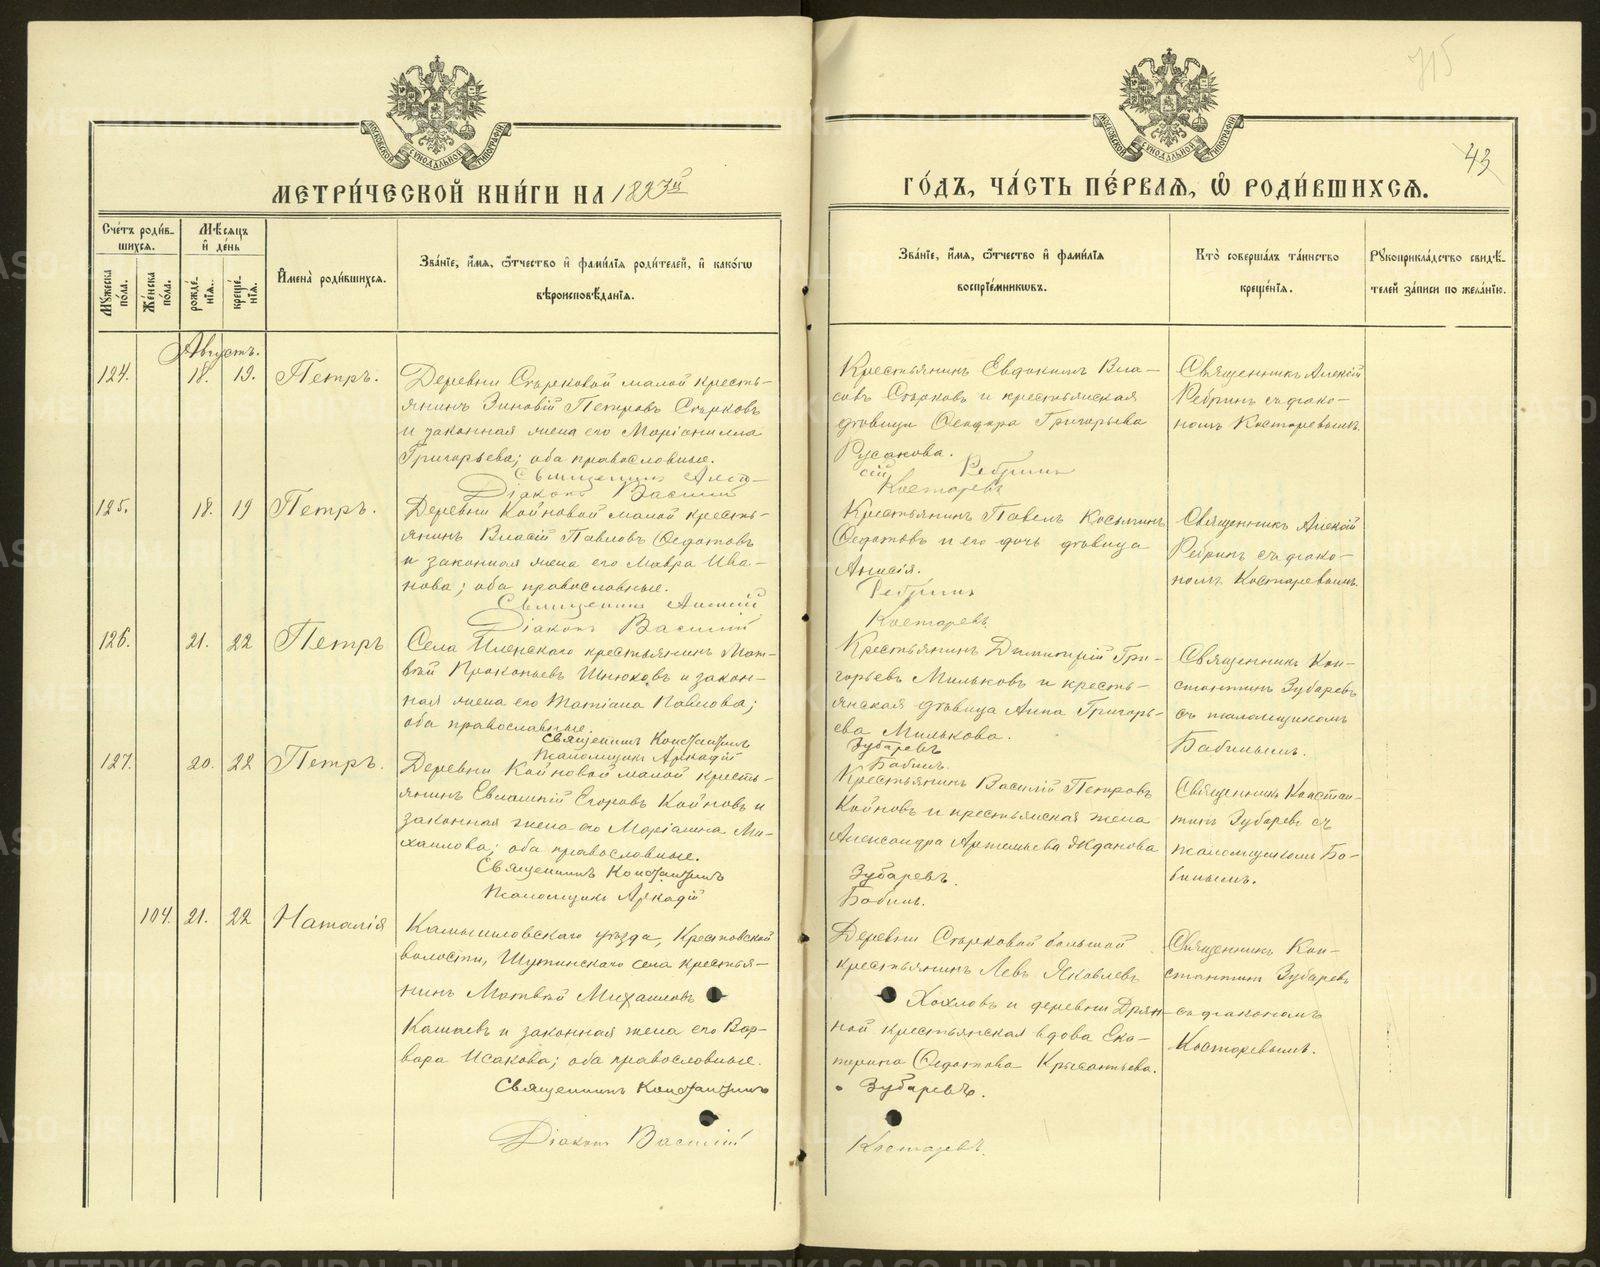 715
43
МОСКОВСКОЙ СѴНОДАЛЬНОЙ ТИПОГРАФІИ
МОСКОВСКОЙ СѴНОДАЛЬНОЙ ТИПОГРАФІИ
МЕТРИ́ЧЕСКОЙ КНИ́ГИ НА
ГО́ДЪ, ЧА́СТЬ ПЕ́РВАЯ, Ѽ РОДИ́ВШИХСЯ.
Сче́тъ роди́в-
шихся.
Му́жеска по́ла.
Же́нска по́ла.
Мѣ́сяцъ
и҆ де́нь
рожде́-
нїя.
креще́-
нїя.
И҆мена̀ роди́вшихся.
Зва́нїе, и҆́мя, ѻ҆́тчество и҆ фами́лїя роди́телей, и҆ како́гѡ
вѣроисповѣ́данїя.
Зва́нїе, и҆́мя, ѻ҆́тчество и҆ фами́лїя
воспрїе́мникѡвъ.
Кто̀ соверша́лъ та́инство
креще́нїя.
Рꙋкоприкла́дство свидѣ́-
телей за́писи по жела́нїю.
Августъ.
124.
18.
19.
Петръ.
Деревни Старковой малой кресть-
янинъ Зиновій Петровъ Старковъ
и законная жена его Маріанилла
Григорьева; оба православные.
Священникъ Алек-
Діаконъ Василій
Крестьянинъ Евдокимъ Вла-
совъ Старковъ и крестьянская
дѣвица Ѳеодора Григорьева
Русакова.
сій Ребринъ
Костаревъ
Священникъ Алексій
Ребринъ съ діако-
номъ Костаревымъ.
125.
18.
19
Петръ.
Деревни Койновой малой кресть-
янинъ Власій Павловъ Ѳедотовъ
и законная жена его Мавра Ива-
нова; оба православные.
Священникъ Алексій
Діаконъ Василій
Крестьянинъ Павелъ Косьминъ
Ѳедотовъ и его дочь дѣвица
Анисія.
Ребринъ
Костаревъ
Священникъ Алексій
Ребринъ съ діако-
номъ Костаревымъ.
126.
21.
22
Петръ
Села крестьянинъ Мат-
вѣй Прокопьевъ Шнюковъ и закон-
ная жена его Татіана Павлова;
оба православные.
Священникъ Константинъ
Псаломщикъ Аркадій
Крестьянинъ Димитрій Гри-
горьевъ Мильковъ и кресть-
янская дѣвица Анна Григорь-
ева Милькова.
Зубаревъ
Бабинъ.
Священникъ Кон-
стантинъ Зубаревъ
съ псаломщикомъ
Бабинымъ.
127.
20.
22
Петръ.
Деревни Койновой малой кресть-
янинъ Евлампій Егоровъ Койновъ и
законная жена его Маріамна Ми-
хаилова; оба православные.
Священникъ Константинъ
Псаломщикъ Аркадій
Крестьянинъ Василій Петровъ
Койновъ и крестьянская жена
Александра Артемьева Жданова
Зубаревъ.
Бабинъ.
Священникъ Констан-
тинъ Зубаревъ съ
псаломщикомъ Ба-
бинымъ.
104.
21.
22
Наталія
Камышловскаго уѣзда, Крестовской
волости, Шутинскаго села крестья-
нинъ Матвѣй Михаиловъ
Камаевъ и законная жена его Вар-
вара Исакова; оба православные.
Священникъ Константинъ
Діаконъ Василій
Деревни Старковой большой
крестьянинъ Левъ Яковлевъ
Хохловъ и деревни Дрян-
ной крестьянская вдова Ека-
терина Ѳедотова
Зубаревъ.
Костаревъ.
Священникъ Кон-
стантинъ Зубаревъ
съ діакономъ
Костаревымъ.